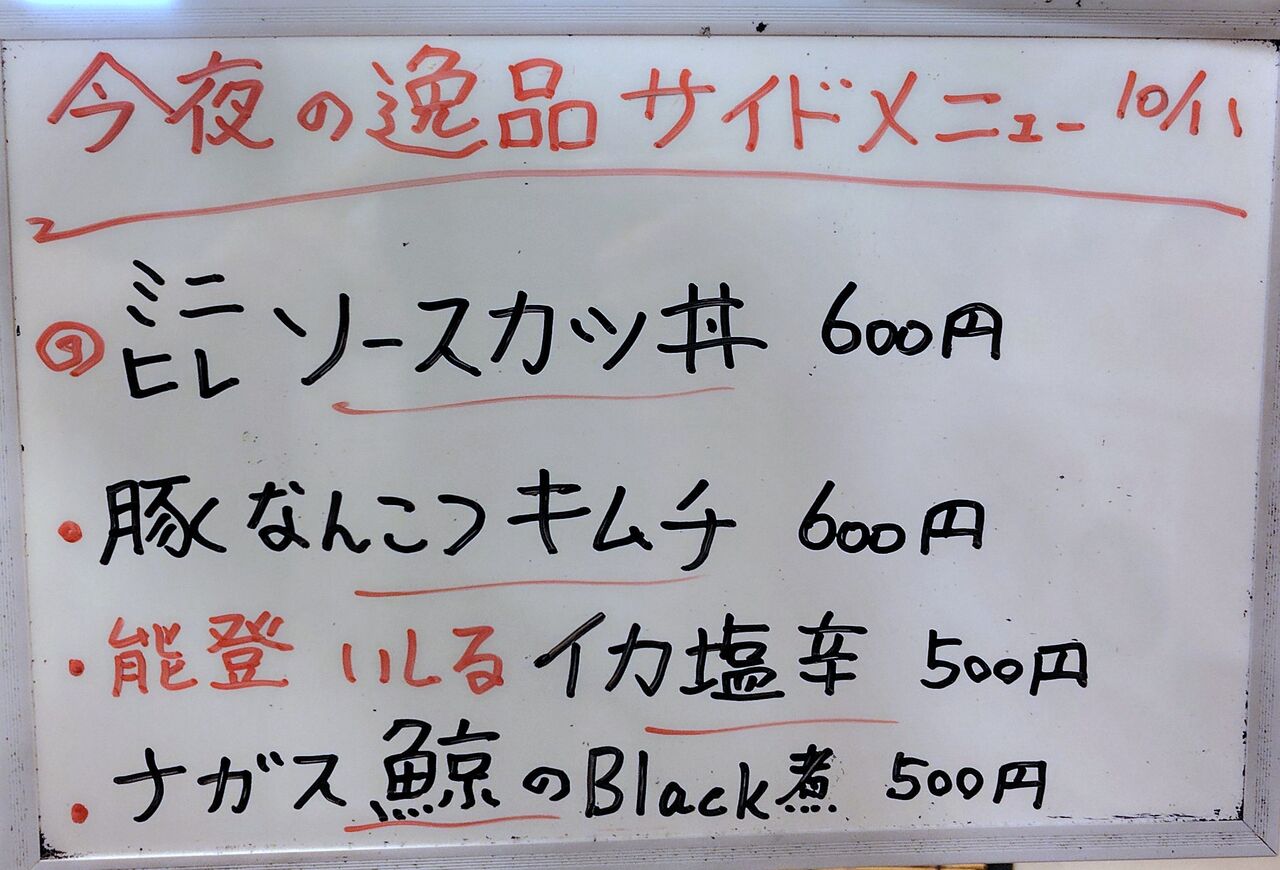 今夜の逸品サイドメニュー 10/11
ミニヒレ ソースカツ丼 600円
・豚くなんこつキムチ 600円
・能登 いしる イカ塩辛 500円
・ナガス鯨のBlack煮 500円